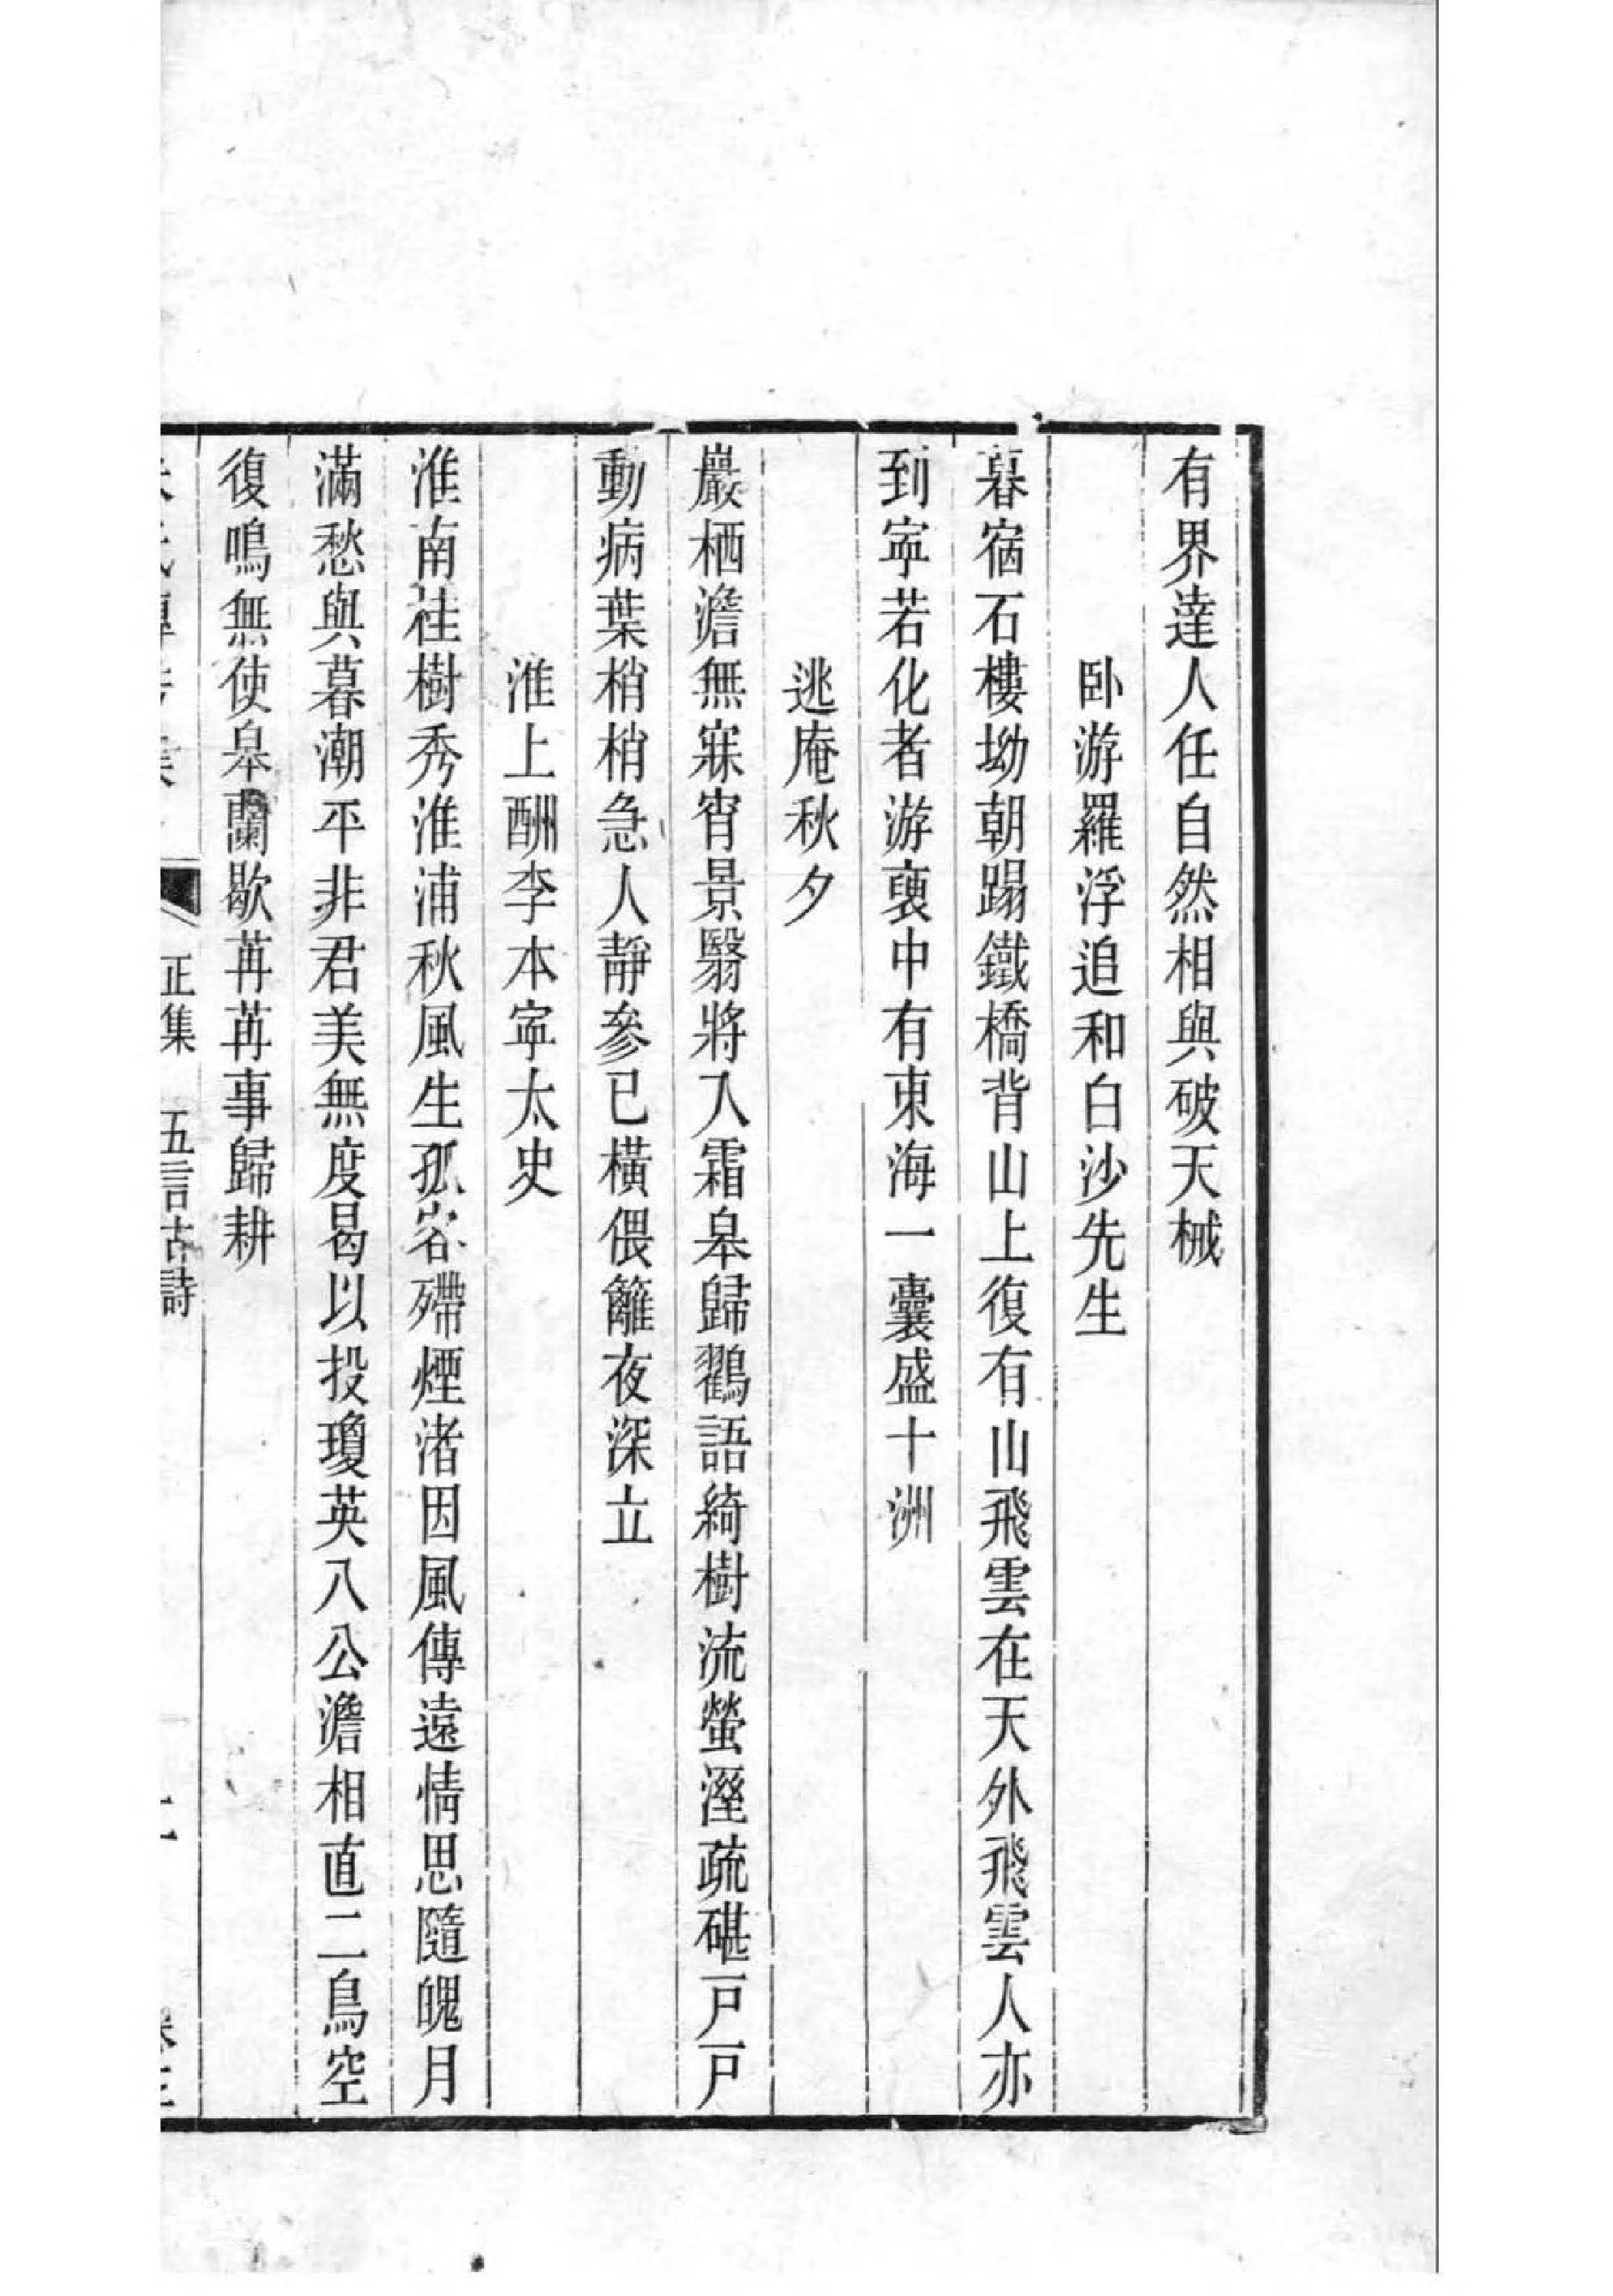 有界達人任自然相與破天械
卧游羅浮追和白沙先生
暮宿石樓坳朝蹋鐵橋背山上復有山飛雲在天外飛雲人亦
到寧若化者游褏中有東海一囊盛十洲
逃庵秋夕
巖栖澹無寐宵景翳將入霜皋歸鸛語綺樹流螢溼疏碪戸戸
動病葉梢梢急人靜參已橫偎籬夜深立
淮上酬李本寧太史
淮南桂樹秀淮浦秋風生孤客殢煙渚因風傳遠情思隨魄月
滿愁與暮潮平非君美無度曷以投瓊英八公澹相直二鳥空
復鳴無使皋蘭歇苒苒事歸耕
正集 五言古詩